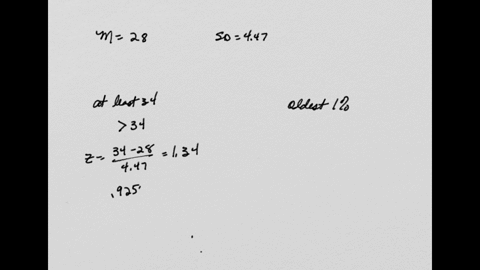 M = 28
SD = 4.47
at least 34
> 34
z = 34 - 28 / 4.47 = 1.34
.925
oldest 1%